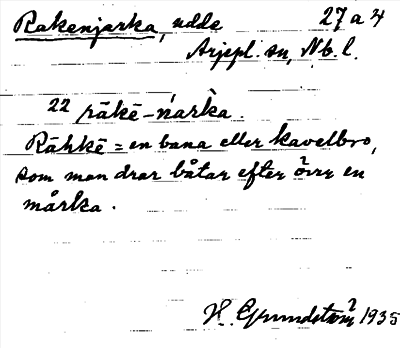 Rakenjarka, udde 27 a 4
Arjepl. sn, Nb. l.
22 rākē-ńarka.
Rāhkē = en bana eller kavelbro,
som man drar båtar efter över en
mårka.
H. Grundström 1935